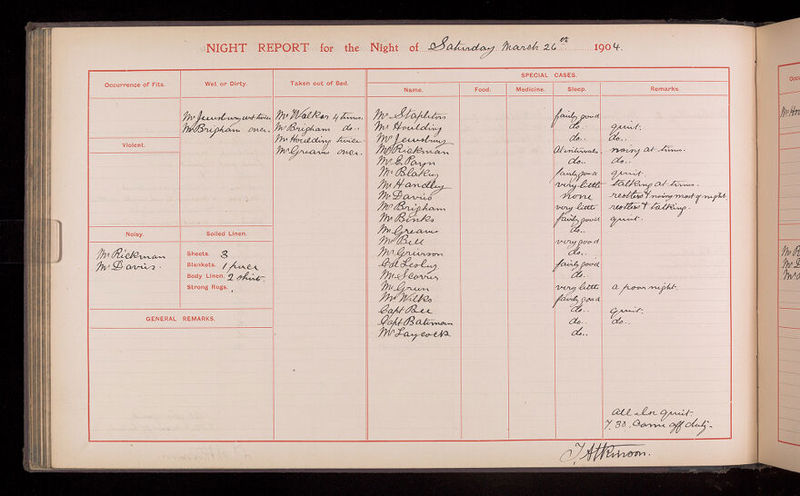 NIGHT REPORT for the Night of Saturday March 26th 1904.
Occurrence of Fits.
Wet or Dirty.
Taken out of Bed.
SPECIAL CASES.
Name. Food. Medicine. Sleep. Remarks.
Mr Jewsbury wet twice
Mr Brigham once.
Mr Walker 4 times.
Mr Brigham do..
Mr Houlding twice
Mr Greams once.
Mr Stapleton fairly good
Mr Houlding do.. quiet.
Mr Jewsbury do.. do..
Mr Rickman At intervals noisy at times.
Mr E. Paryn do.. do..
Mr Blakey fairly good quiet.
Mr Handley very little talking at times.
Mr Davies none restless & noisy most of night
Mr Brigham very little restless & talking.
Mr Binks fairly good quiet.
Mr Greams do..
Mr Bell very good
Mr Grierson do..
fairly good
do..
Mr Green very little a poor night.
Mr Wilks fairly good
Capt Bell do.. quiet.
Capt Bateman do.. do..
Mr Laycock do..
Violent.
Noisy.
Mr Rickman
Mr Davies.
Soiled Linen.
Sheets. 3
Blankets. 1 piece
Body Linen. 2 shirts
Strong Rugs.
GENERAL REMARKS.
all else quiet
7.30. Came off duty.
T Atkinson.
Occu